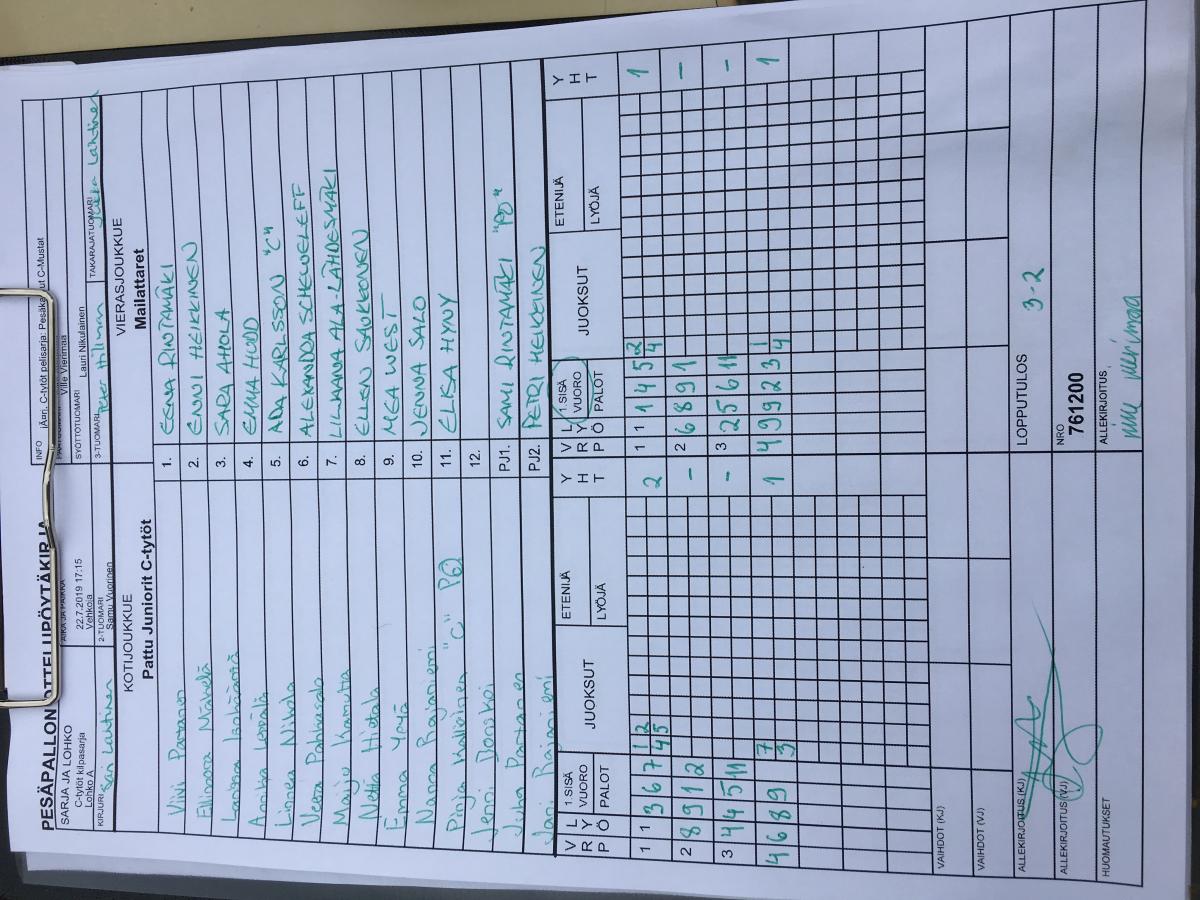 PESÄPALLON OTTELUPÖYTÄKIRJA
INFO
SARJA JA LOHKO
C-tytöt kilpasarja
Lohko A
AIKA JA PAIKKA
22.7.2019 17:15
Vehkoja
Ville Vierimaa
KIRJURI
Sari Lahtinen
2-TUOMARI
Samu Vuorinen
SYÖTTÖTUOMARI
Lauri Nikulainen
3-TUOMARI
TAKARAJATUOMARI
Jukka Lahtinen
KOTIJOUKKUE
Pattu Juniorit C-tytöt
VIERASJOUKKUE
Mailattaret
Viivi Partanen
1. EENA RINTAMÄKI
Ellinoora Mäkelä
2. ENNI HEIKKINEN
3. SARA AHOLA
Annika
4. EMMA HUDD
Linnea Nikola
5. ADA KARLSSON "C"
Veera
6. ALEKANDRA SCHEWELEFF
Maiju
7. LILIANA ALA-LÄHDESMÄKI
Netta Hietala
8. ELLEN SAUKKONEN
Emma
9. MEA WEST
Nanna Rajaniemi
10. JENNA SALO
Pinja "C"
11. ELISA HYNY
Jenni Donskoi
12.
Juha Partanen
PJ1. SAMI RINTAMÄKI "PÖ"
Jani Rajaniemi
PJ2. PETRI HEIKKINEN
V R P
L Y Ö
1.SISÄ VUORO
PALOT
JUOKSUT
ETENIJÄ
LYÖJÄ
Y H T
V R P
L Y Ö
1.SISÄ VUORO
PALOT
JUOKSUT
ETENIJÄ
LYÖJÄ
Y H T
1 1 3 6 7 1 2 2 1 1 1 4 5 2 1
4 5 4
2 8 9 1 2 - 2 6 8 9 1 -
3 4 4 5 11 - 3 2 5 6 11 -
4 6 8 9 7 1 1 4 9 9 2 3 1 1
3 4
VAIHDOT (KJ)
VAIHDOT (VJ)
ALLEKIRJOITUS (KJ)
LOPPUTULOS
3-2
ALLEKIRJOITUS (VJ)
NRO
761200
HUOMAUTUKSET
ALLEKIRJOITUS